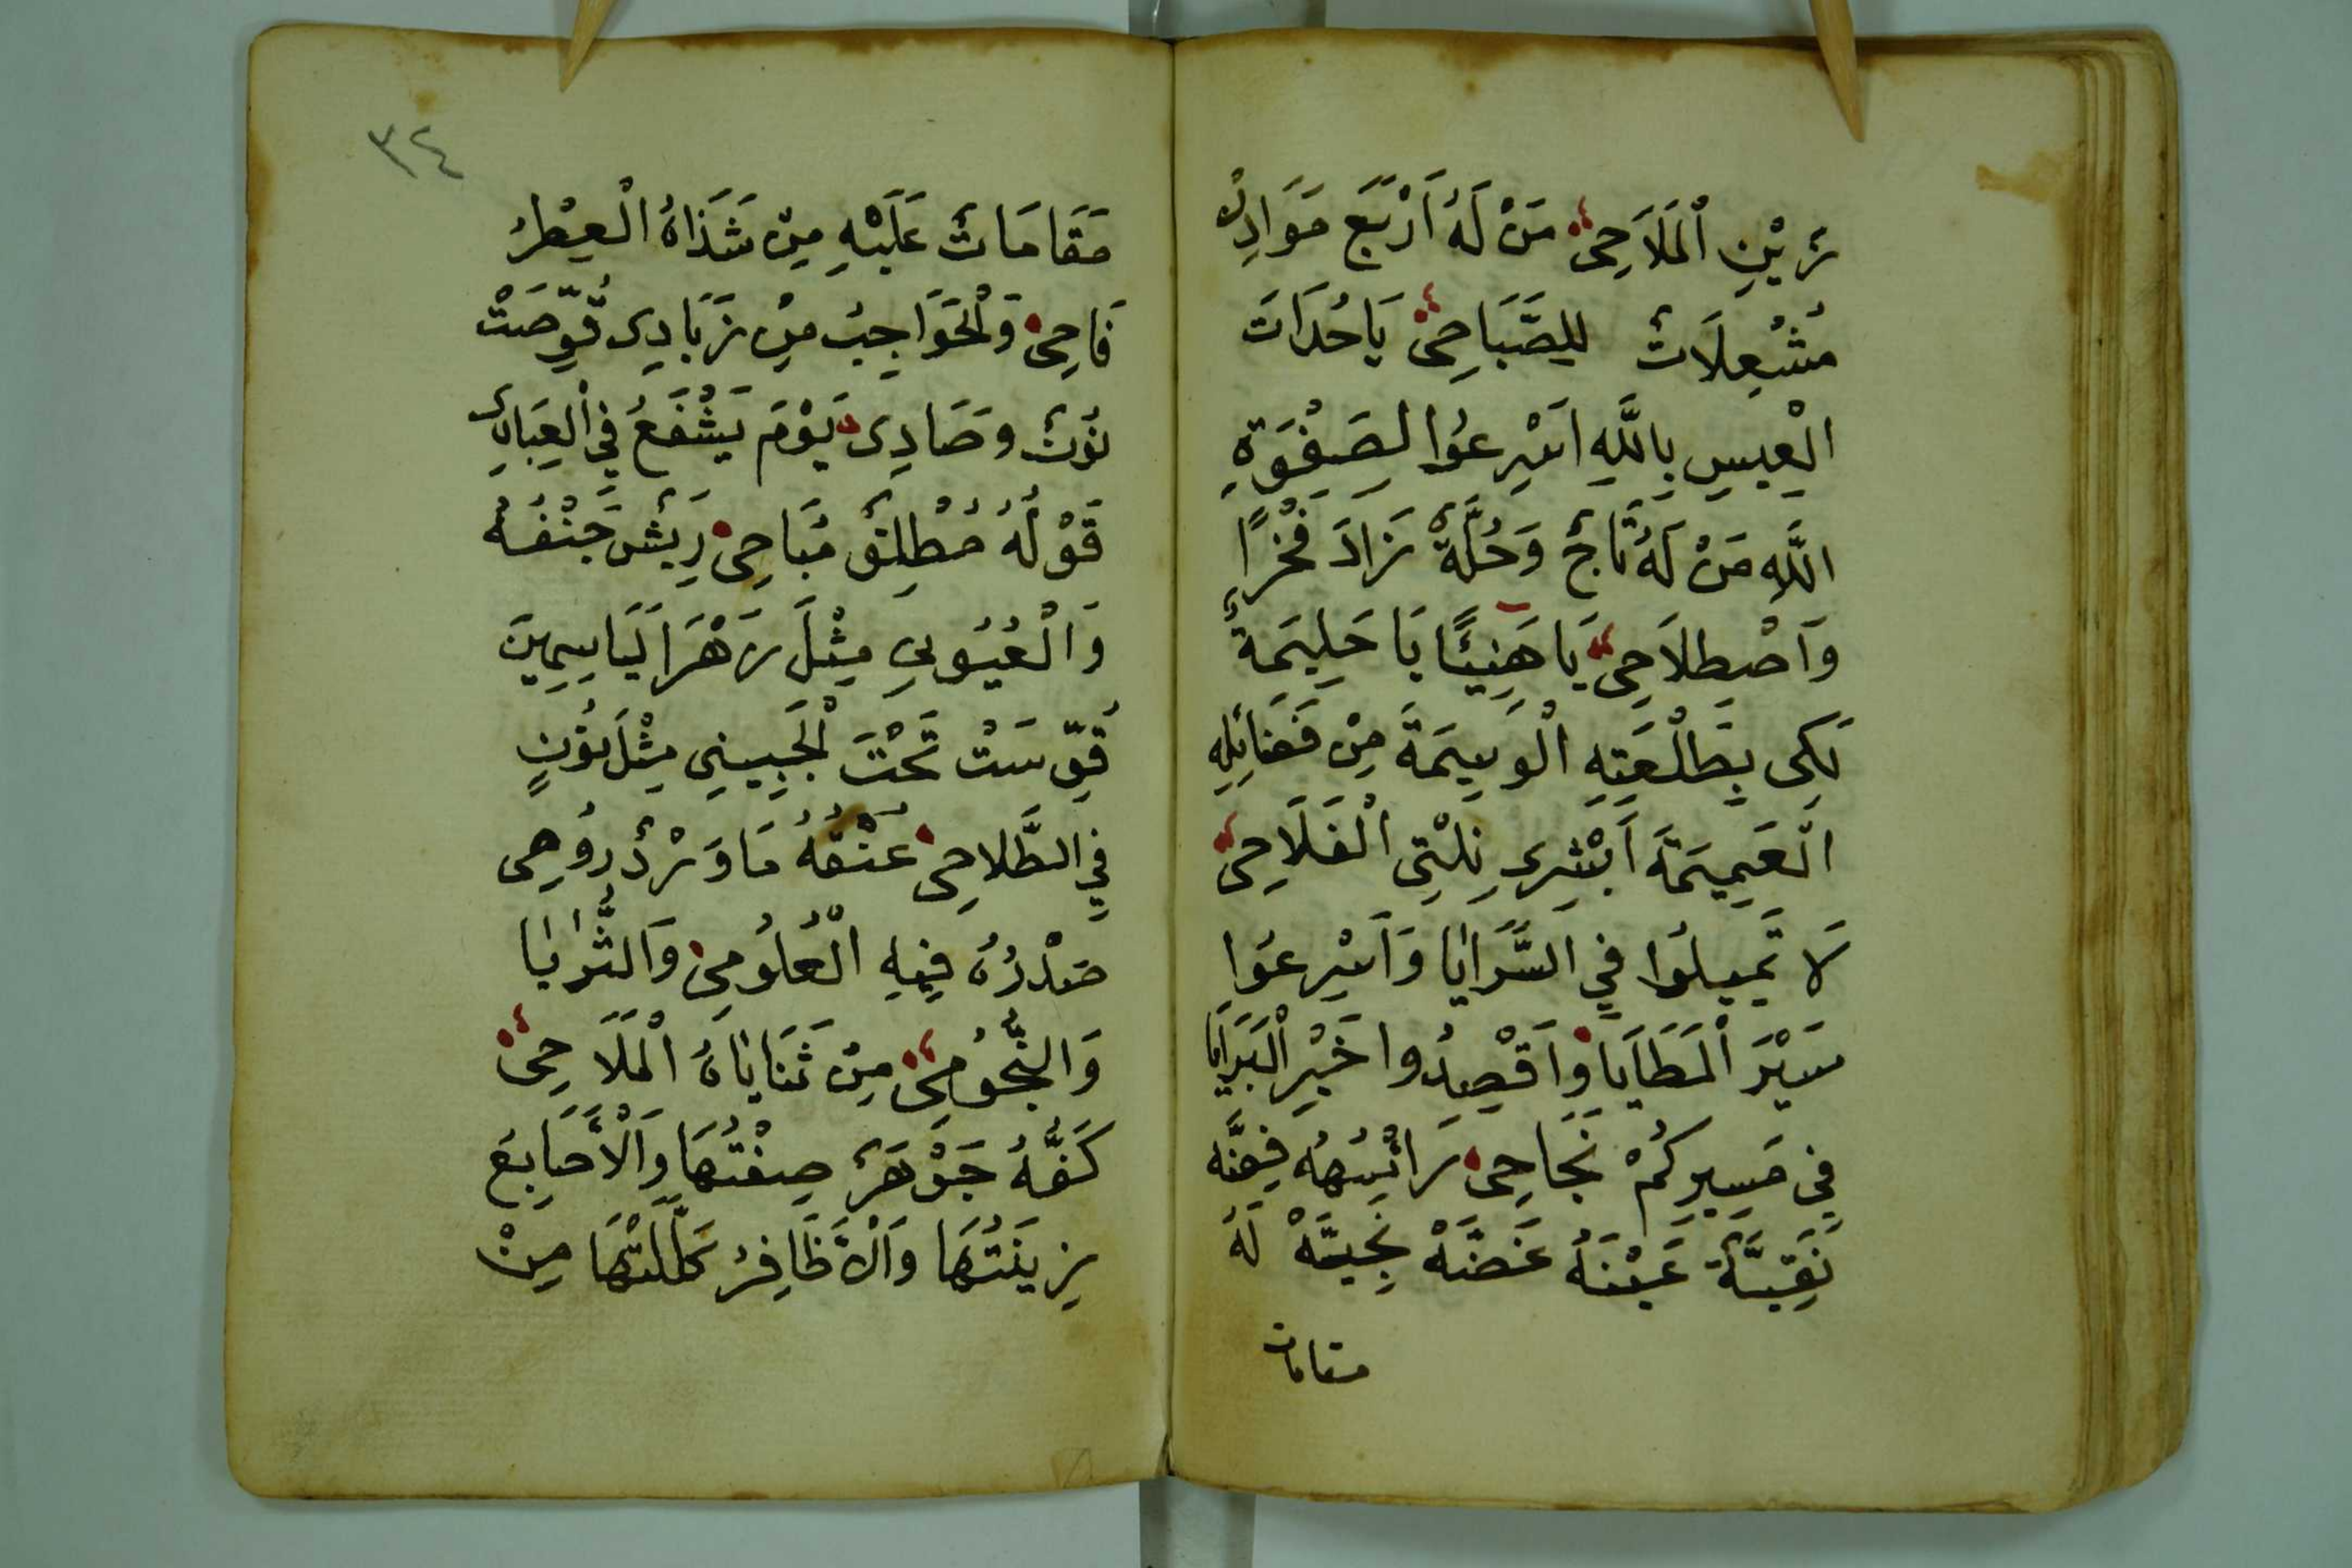 زَيْنِ اْلمَلَاحِىْ مَنْ لَهُ اَرْبَع مَوَادِنْ
مُشْعِلَاتٌ لِلصَّبَاحِىْ يَاحُدَاتَ
الْعِيسِ بِاللَّهِ اَسْرِعُوا لِصَفْوَةِ
اللَّهِ مَنْ لَهُ تَاجٌ وَحُلَّةٌ زَادَ فَخْرًا
وَاَصْطِلَاحِىْ يَا هَنِيئًا يَا حَلِيمَةٌ
لَكِى بِطَلْعَتِهِ الْوَسِيمَةَ مِنْ فَضَائِلِهِ
الْعَمِيمَةَ اَبْشِرِى نِلْتِى اْلفَلَاحِىْ
لَا تَمِيلُوا فِي السَّرَايَا وَاَسْرِعُوا
سَيْرَ اْلمَطَايَا وَاَقْصِدُوا خَيْرِ اْلبَرَايَا
فِي مَسِيرِكُمْ نَجَاحِى رَائسُهُ فِضَّه
نَقِيَّةٌ عَيْنَهُ غَضَّهْ نَجِيَّهْ لَهُ
مقامات
٣٤
مَقَامَاتٌ عَلَيْهِ مِنْ شَذَاهُ الْعِطْرُ
فَاحِىْ وَاْلحَوَاجِبُ مِنْ زَبَادِى قُوِّصَتْ
نُونٌ وَصَادِى يَوْمَ يَشْفَعُ فِي الْعِبَادِى
قَوْلُهُ مُطْلِقٌ مُبَاحِىْ رِيشَ جَنْفُهُ
وَالْعُيُونِي مِثْلَ زَهْرَالْيَاسِمِينَ
قُوِّسَتْ تَحْتَ اْلجَبِينِي مِثْلَ نُونٍ
فِي الطَّلَاحِىْ عُنْقُهُ مَاوَرْدٌ رُوحِى
صَدْرُهُ فِيهِ الْعُلُومِىْ وَالثُّرَايَا
وَالنُّجُومِىْ مِنْ ثَنَايَاهُ اْلمَلَاحِىْ
كَفُّهُ جَوْهَرٌ صِفْتُهَا وَاْلأَصَابِعَ
زِينَتُهَا وَاْلأَظَافِرُ كَلَّلَتْهَا مِنْ